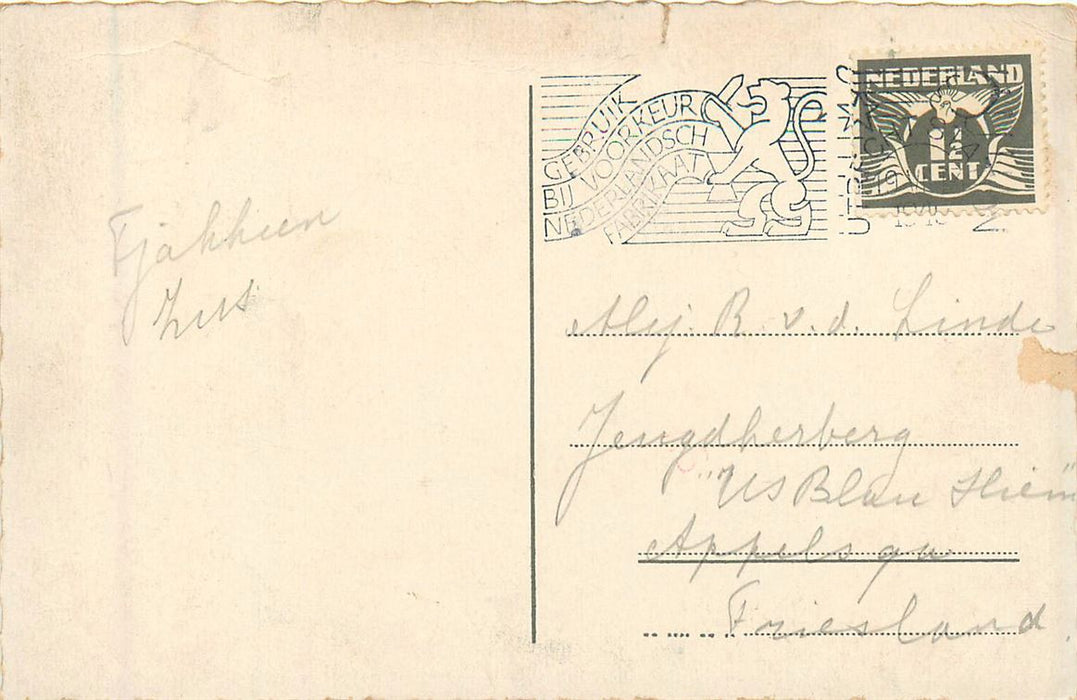 GEBRUIK
BIJ VOORKEUR
NEDERLANDSCH
FABRIKAAT
NEDERLAND
1½
CENT
Tjakkien
Zus
Mej. R. v. d. Linde
Jeugdherberg
"Us Blau Hiem"
Appelsga
Friesland.